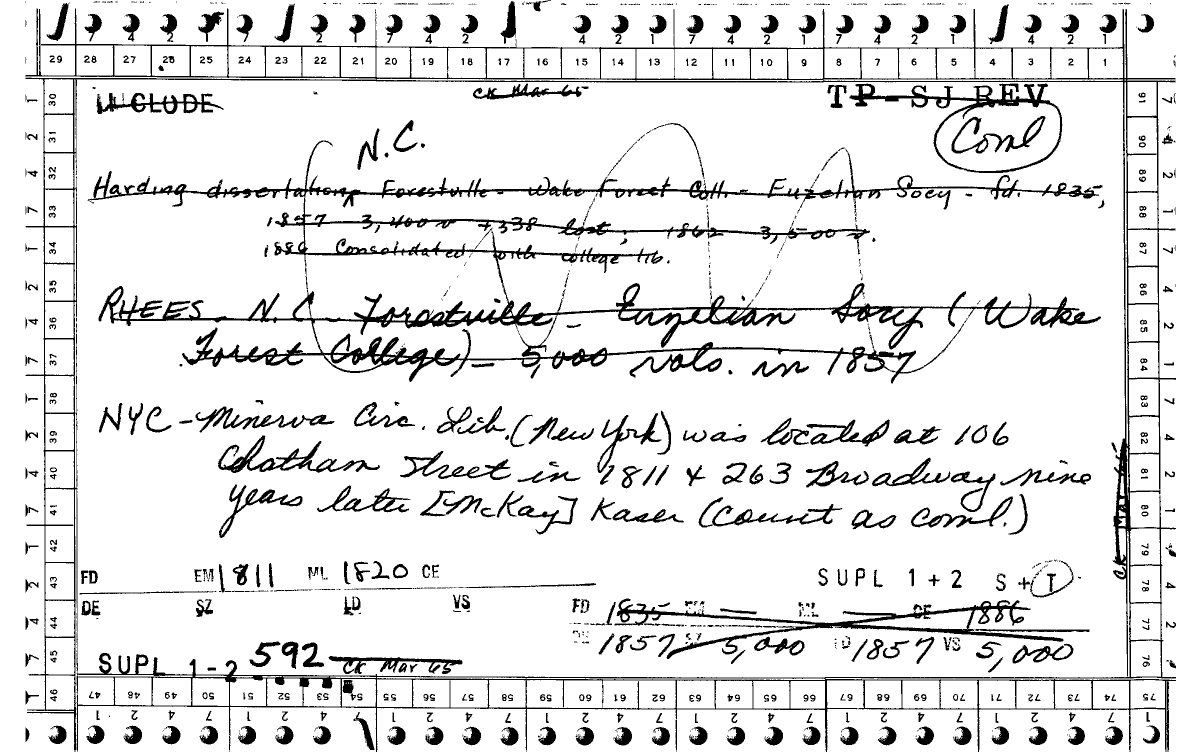 29 28 27 26 25 24 23 22 21 20 19 18 17 16 15 14 13 12 11 10 9 8 7 6 5 4 3 2 1
INCLUDE
CK Mar 65
TP-SJ REV
Coml
N.C.
Harding dissertation, Forestville - Wake Forest Coll. - Euzelian Socy - fd. 1835,
1857 3,400 v + 338 lost; 1862 3,500 v.
1886 Consolidated with college lib.
RHEES - N.C. - Forestville - Euzelian Socy (Wake
Forest College) - 5,000 vols. in 1857
NYC - Minerva Circ. Lib. (New York) was located at 106
Chatham Street in 1811 & 263 Broadway nine
years later [McKay] Kaser (count as coml.)
CK Mar 65
FD EM 1811 ML 1820 CE
SUPL 1 + 2 S + I
DE SZ LD VS
FD 1835 EM — ML — CE 1886
DE 1857 SZ 5,000 LD 1857 VS 5,000
SUPL 1-2 592 CK Mar 65
47 48 49 50 51 52 53 54 55 56 57 58 59 60 61 62 63 64 65 66 67 68 69 70 71 72 73 74 75